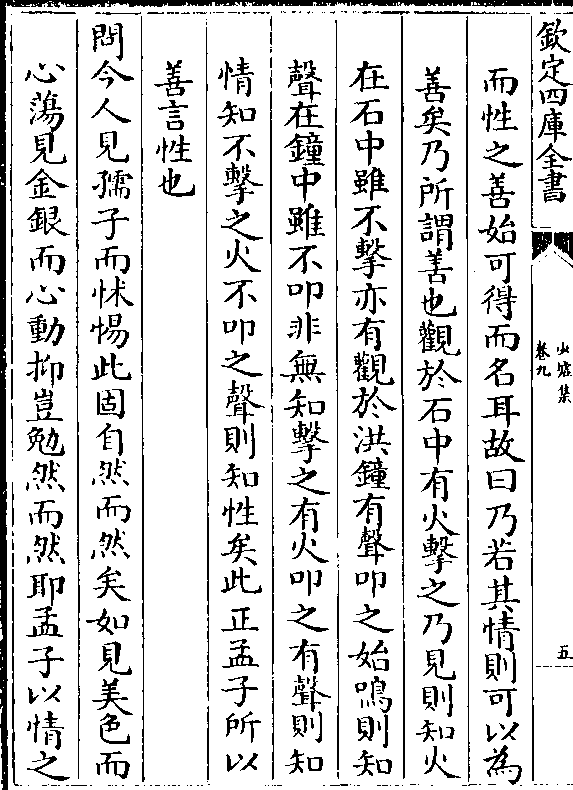 欽定四庫全書
卷九
五
而性之善始可得而名耳故曰乃若其情則可以為
善矣乃所謂善也觀於石中有火擊之乃見則知火
在石中雖不擊亦有觀於洪鐘有聲叩之始鳴則知
聲在鐘中雖不叩非無知擊之有火叩之有聲則知
情知不擊之火不叩之聲則知性矣此正孟子所以
善言性也
問今人見孺子而怵惕此固自然而然矣如見美色而
心蕩見金銀而心動抑豈勉然而然耶孟子以情之